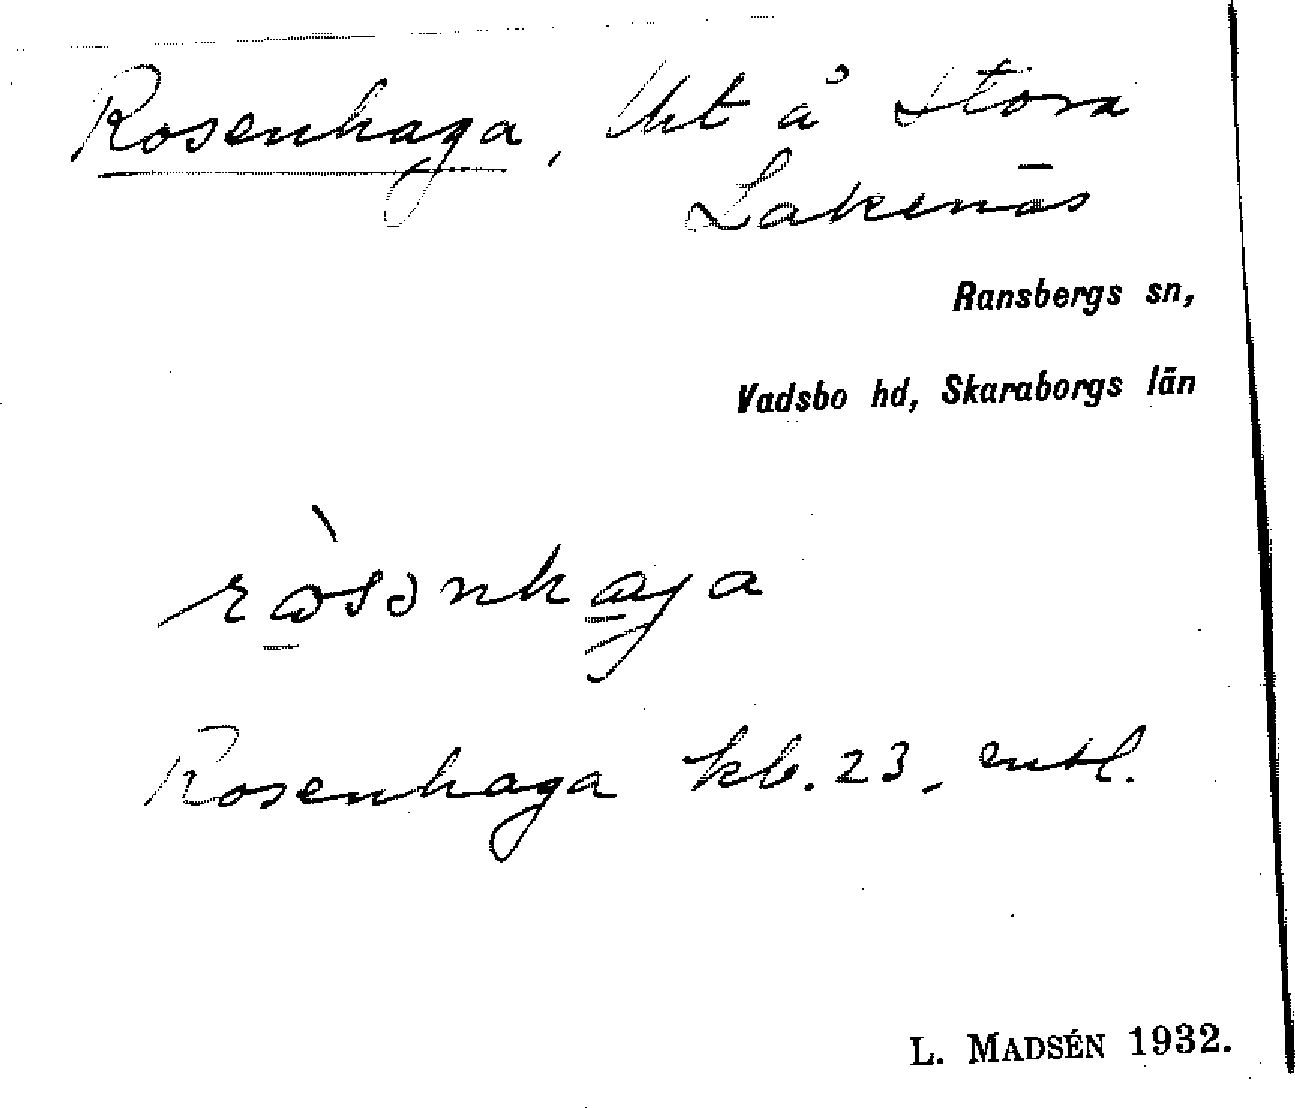 Rosenhaga, lht å Stora
Lakenäs
Ransbergs sn,
Vadsbo hd, Skaraborgs län
Rosenhaga kb. 23, entl.
L. MADSÉN 1932.